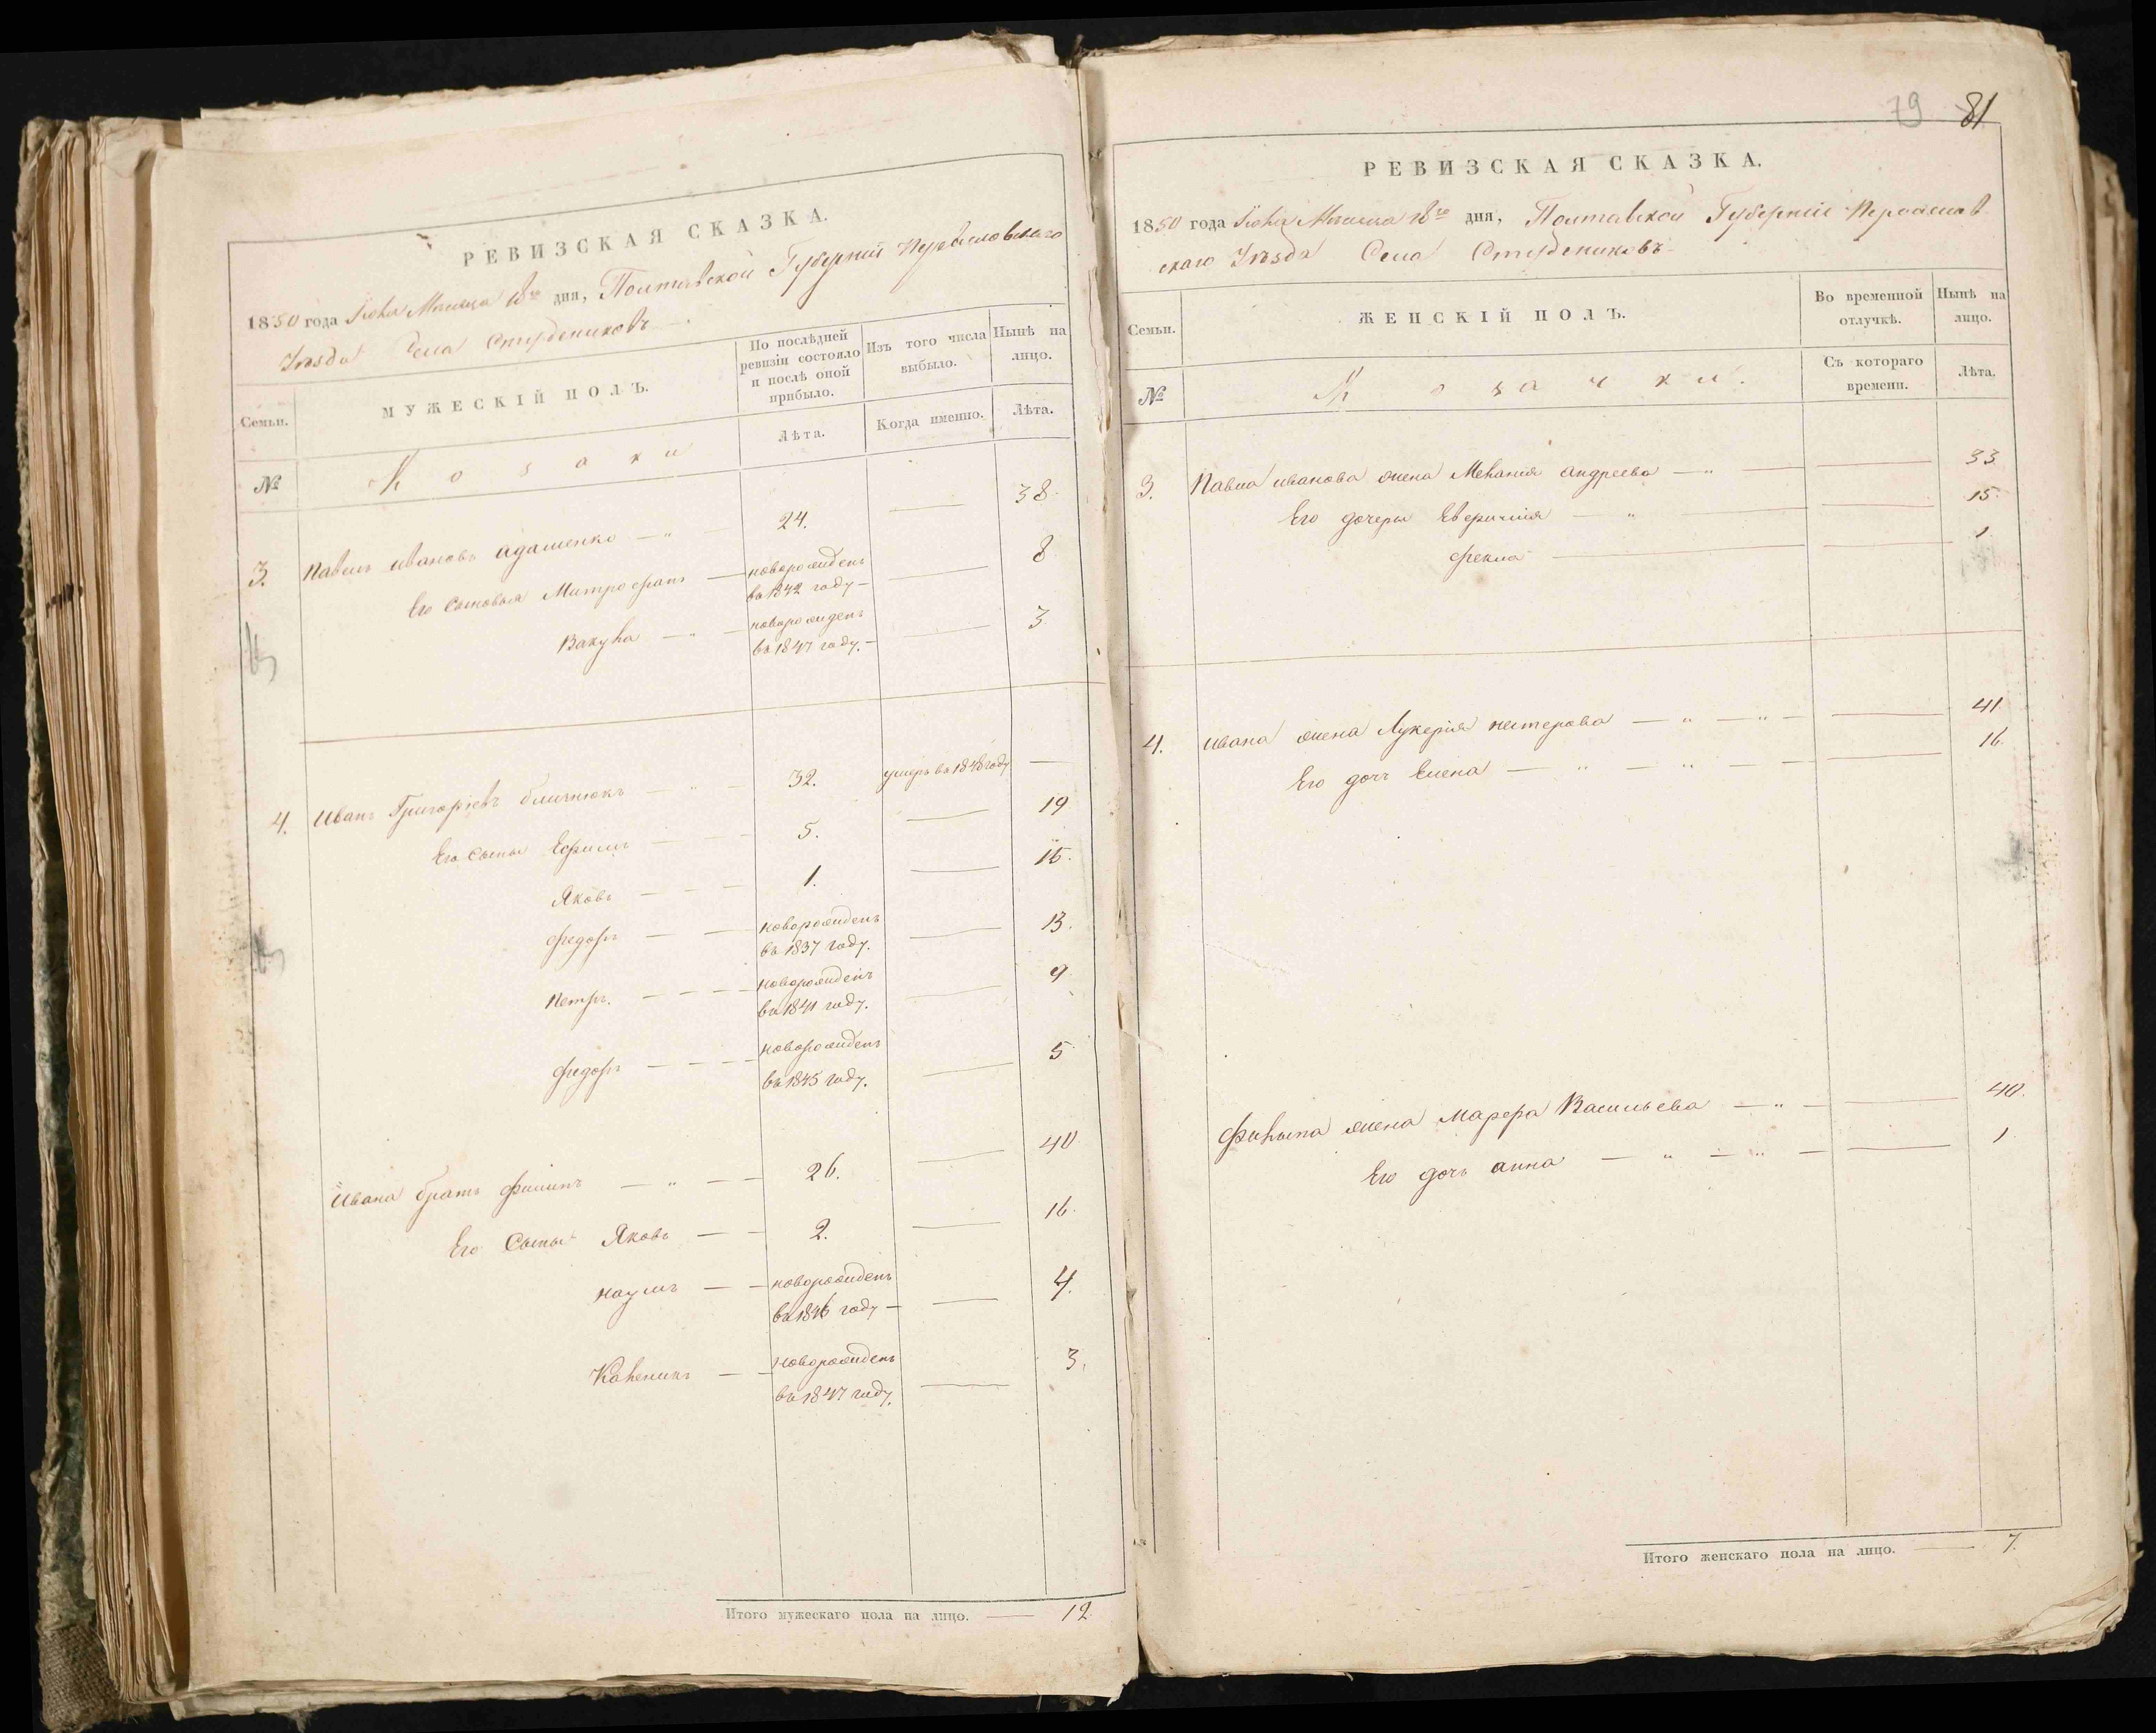 РЕВИЗСКАЯ СКАЗКА.
1850 года Июня Месяца 18го дня, Полтавской Губернии Переяславского
Уезда Села Студениковъ
Семьи.
МУЖЕСКІЙ ПОЛЪ.
По послѣдней ревизіи состояло и послѣ оной прибыло.
Изъ того числа выбыло.
Нынѣ на лицо.
№
Козаки
Лѣта.
Когда именно.
Лѣта.
3. Павелъ Ивановъ Адаменко 24. 38.
Его Сыновья Митрофанъ новорожденъ въ 1842 году 8
Вакула новорожденъ въ 1847 году. 3
4. Иванъ Григоріевъ 32. умеръ въ 1848 году
Его Сыны Ефимъ 5. 19
Яковъ 1. 15.
Федоръ новорожденъ въ 1837 году. 13.
Петръ. новорожденъ въ 1841 году. 9
Федоръ новорожденъ въ 1845 году. 5
Ивана братъ Филипъ 26. 40
Его Сыны Яковъ 2. 16.
Наумъ новорожденъ въ 1846 году 4.
Каленикъ новорожденъ въ 1847 году. 3.
Итого мужескаго пола на лицо. 12.
79 81
РЕВИЗСКАЯ СКАЗКА.
1850 года Июня Месяца 18го дня, Полтавской Губерніи Переяслав-
скаго Уезда Села Студениковъ
Семьи.
ЖЕНСКІЙ ПОЛЪ.
Во временной отлучкѣ.
Нынѣ на лицо.
№
Козачки.
Съ котораго времени.
Лѣта.
3. Павла Иванова жена Меланія Андреева 33
Его дочеры 15.
Фекла 1
4. Ивана жена Лукерія Нестерова 41
Его дочь Елена 16.
Филыпа жена Марфа Васильева 40.
Его дочь Анна 1
Итого женскаго пола на лицо. 7.